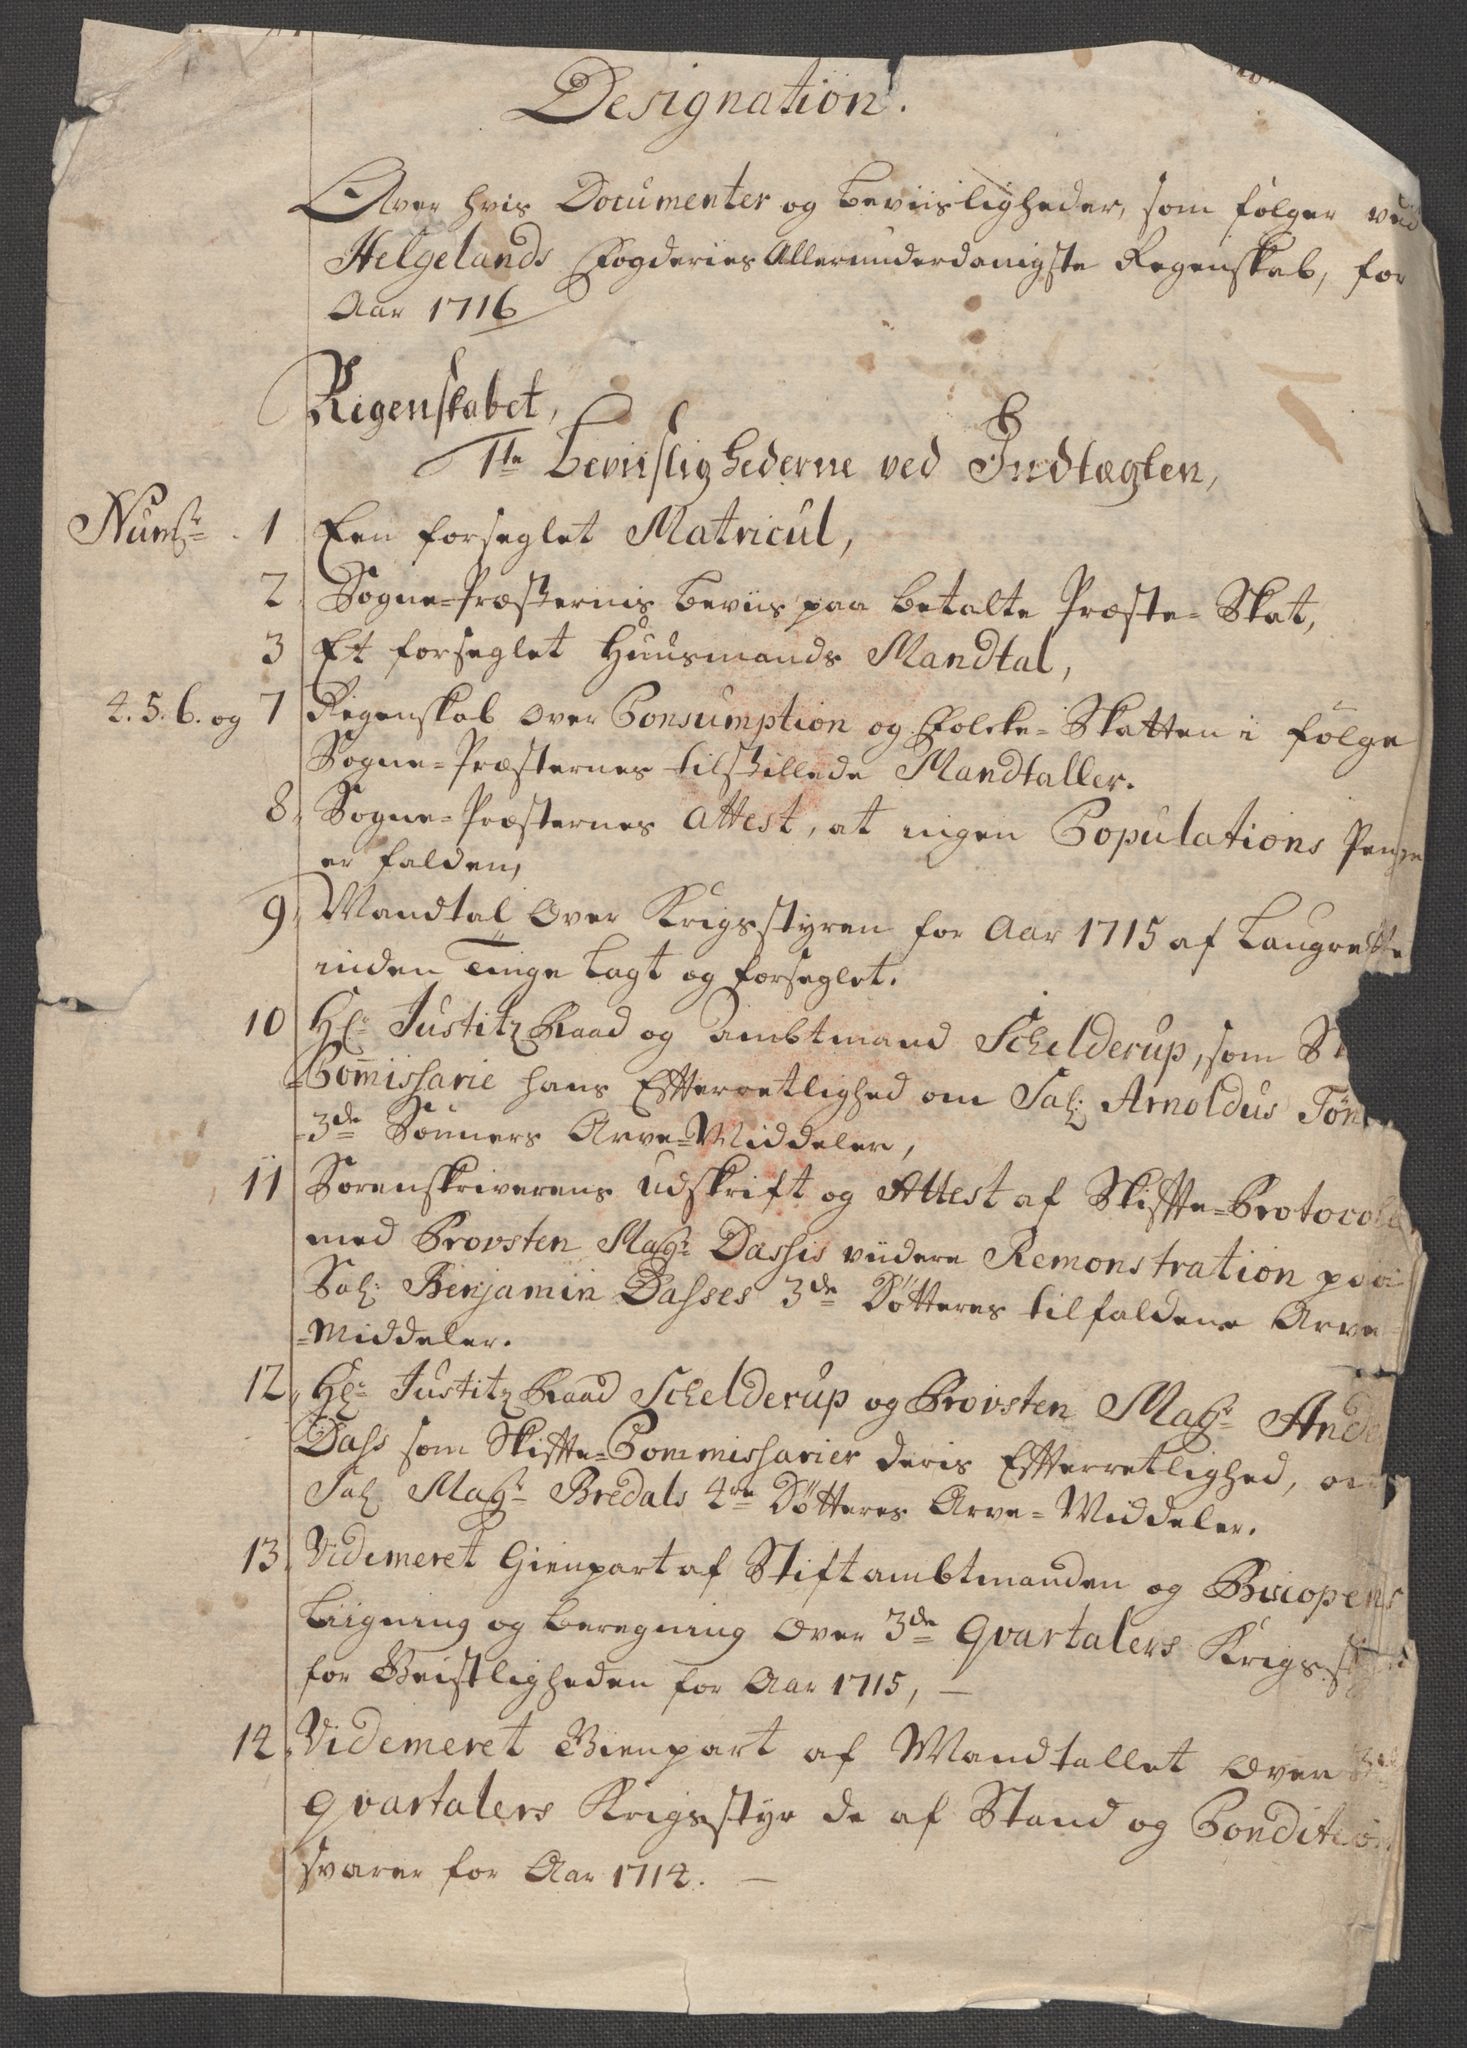 Designation.
Over hvis Documenter og beviisligheder, som følger ved
Helgelands Fogderies Allerunderdanigste Regenskab, for
Aar 1716
Regenskabet,
1te beviislighederne ved Indtægten,
Numr. 1 Een forseglet Matricul,
2 Sogne-Præsternis beviis paa betalte Præste-Skat,
3 Et forseglet Huusmands Mandtal,
4. 5. 6. og 7 Regenskab over Consumption og Folcke-Skatten i følge
Sogne-Præsternes tilstillede Mandtaller.
8, Sogne-Præsternes attest, at ingen Copulations Penge
er falden,
9, Mandtal over Krigsstyren for Aar 1715 af Laugrette
inden Tinge lagt og forseglet.
10 Hr. Justitz Raad og ambtmand Schelderup, som
Commissarie hans Efterretlighed om Sal: Arnoldus
3de Sønners Arve-Middeler,
11 Sorenskriverens udskrift og Attest af Skiffte-Protocoll
med Provsten Magr. Dassis viidere Remonstration paa
Sal: Benjamin Dasses 3de Døtteres tilfaldene Arve-
-Middeler.
12, Hr. Justitz Raad Schelderup og Provsten Magr. Ander
Dass som Skiffte-Commissarier deris Efterretlighed, om
Sal Magr. Bredals 4re Døtteres Arve-Middeler.
13, Videmeret Gienpart af Stiftambtmanden og Biscopens
Liigning og beregning over 3de Qvartalers
for Geistligheden for Aar 1715, —
14, Videmeret Gienpart af Mandtallet over
Qvartalers Krigsstyr de af Stand og Condition
svarer for Aar 1714. —